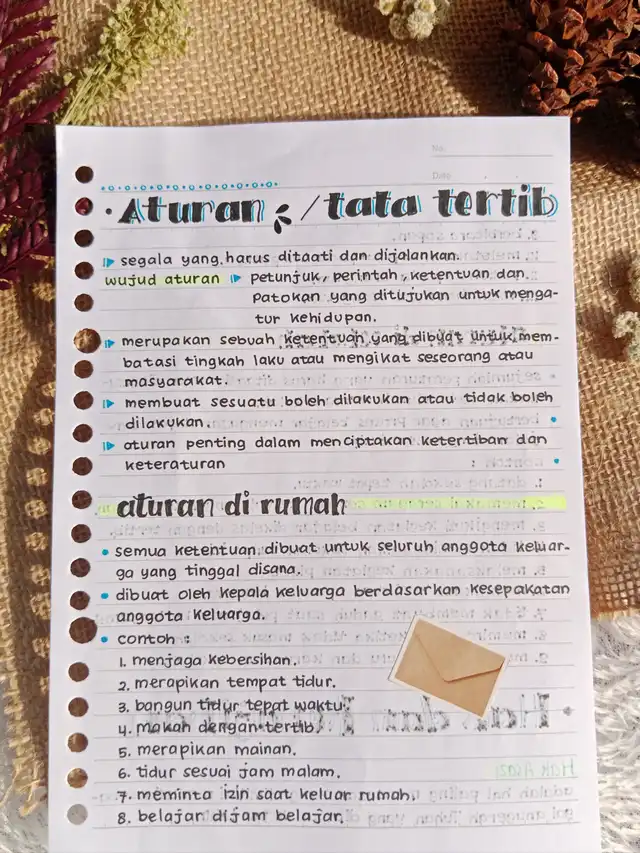 No:
Date
• Aturan / tata tertib
segala yang harus ditaati dan dijalankan.
wujud aturan petunjuk, perintah, ketentuan dan
patokan yang ditujukan untuk menga-
tur kehidupan.
merupakan sebuah ketentuan yang dibuat untuk mem-
batasi tingkah laku atau mengikat seseorang atau
masyarakat.
membuat sesuatu boleh dilakukan atau tidak boleh
dilakukan.
aturan penting dalam menciptakan ketertiban dan
keteraturan
aturan di rumah
• semua ketentuan dibuat untuk seluruh anggota keluar-
ga yang tinggal disana.
• dibuat oleh kepala keluarga berdasarkan kesepakatan
anggota keluarga.
• contoh :
1. menjaga kebersihan.
2. merapikan tempat tidur.
3. bangun tidur tepat waktu.
4. makan dengan tertib.
5. merapikan mainan.
6. tidur sesuai jam malam.
7. meminta izin saat keluar rumah.
8. belajar dijam belajar.